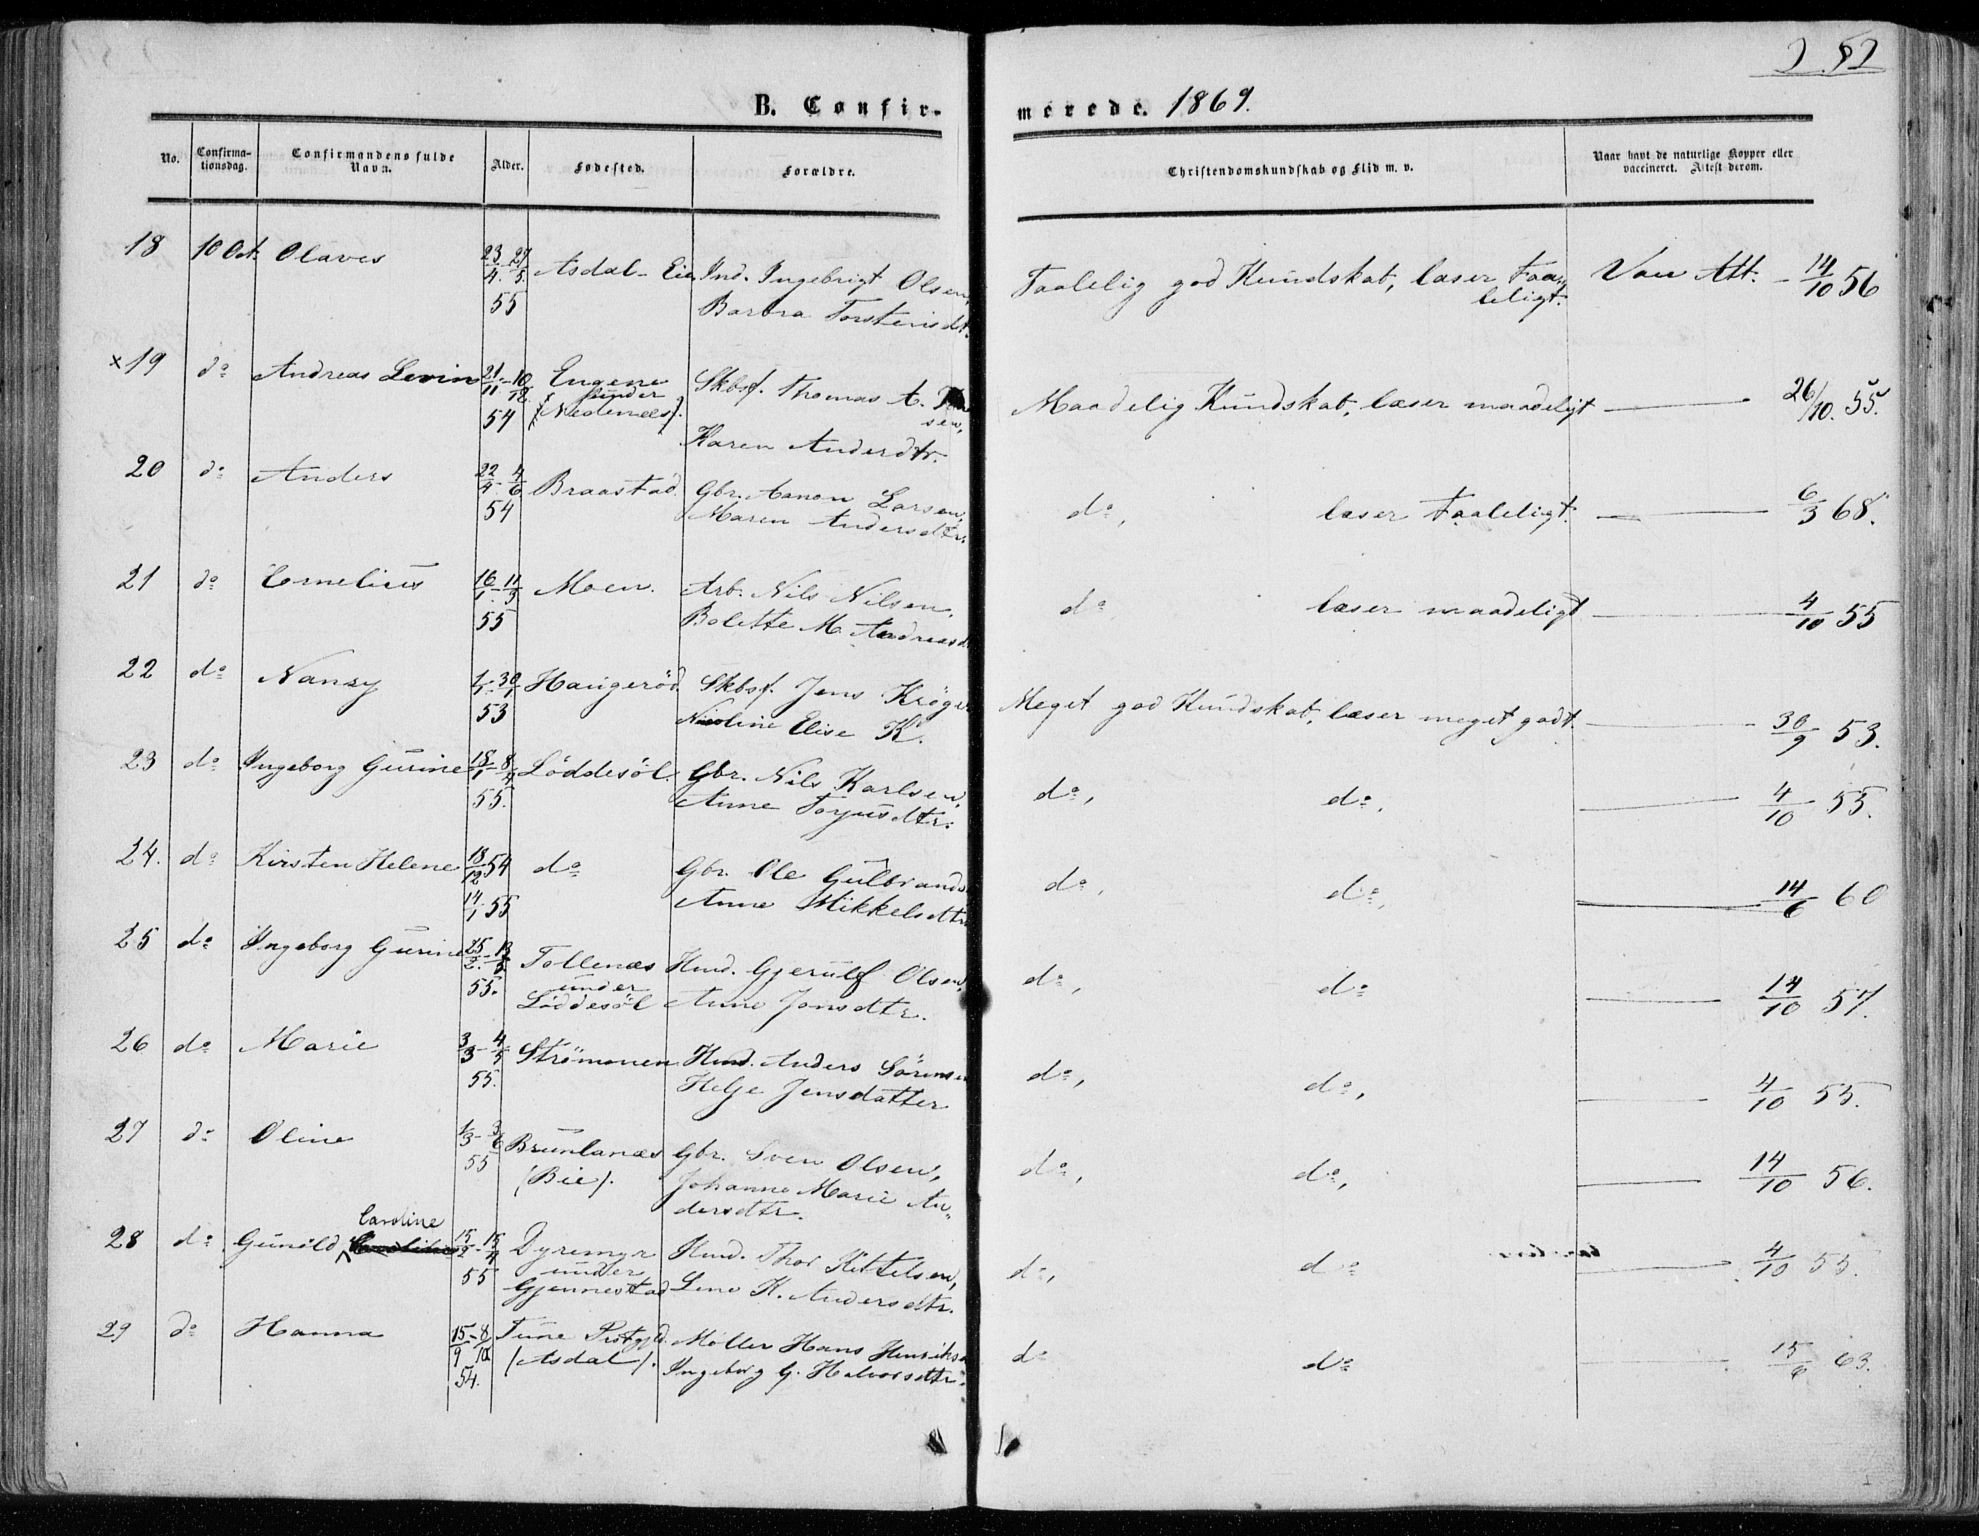 252
B. Confirmerede. 1869.
No. Confirmationsdag. Confirmandens fulde Navn. Alder. Fødested. Forældre. Christendomskundskab og Flid m. v. Naar havt de naturlige Kopper eller vaccineret. Attest derom.
18 10 Oct. Olaves 23/4 - 27/5 Asdal-Eie Ind. Ingebrigt Olsen, Taalelig god Kundskab, læser taa- Vac Att. - 14/10 56
55 Barbra Torstensdt. leligt.
x19 do Andreas Levin 21/11 - 10/12 Engene Skbsf. Thomas A. Maadelig Kundskab, læser maadeligt — 26/10. 55.
54 under sen,
(Nedenæs). Karen Anderdtr.
20 do Anders 22/4 - 4/6 Braastad Gbr. Aanon Larsen, do, læser taaleligt. — 6/3 68.
54 Maren Andersdtr.
21 do Cornelius 16/1 - 11/3 Moen. Arb. Nils Nilsen, do læser maadeligt — 4/10 55
55 Bolette M. Andreasd
22 do Nanzy 1/1 - 30/1 Haugerød Skbsf. Jens Krøger Meget god Kundskab, læser meget godt. — 30/9 53.
53 Nicoline Elise K.
23 do Ingeborg Gurine 18/1 - 8/4 Løddesøl. Gbr. Nils Karlsen, do, do, — 4/10 55.
55. Anne Torjusdtr.
24. do Kirsten Helene 18/12 54 do Gbr. Ole Gulbrands do, do, — 14/6 60
14/1 55 Anne Mikkelsdtr
25 do Ingeborg Gurine 25/2 - Tollenæs Huusd. Gjerulf Olsen, do, do — 14/10 57.
55. under
Løddesøl Anne Jonsdtr.
26 do Marie 3/3 - 4/5 Strømmen Huusd. Anders Sørensen do, do, — 4/10 55.
55. Helje Jensdatter
27 do Oline 1/3 - 3/6 Brunlanæs Gbr. Sven Olsen, do, do, — 14/10 56.
55 (Bie). Johanne Marie An-
dersdtr.
Caroline
28 do Gunild 15/2 - 15/4 Dyremyr Huusd. Thor Kittelsen, do, do — 4/10 55.
55 under
Gjennestad Lene K. Andersdtr.
29 do Hanna 15/9 - 8/10 Tune Prstgjld. Møller Hans Henriks do do — 15/6 63.
54. (Asdal). Ingeborg G. Halvorsdtr.